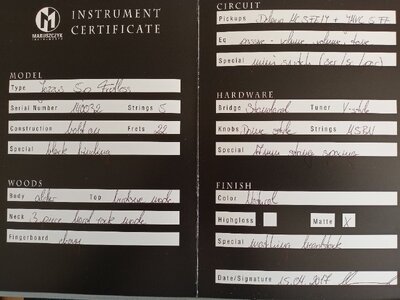 MARUSZCZYK
INSTRUMENTS
INSTRUMENT
CERTIFICATE
MODEL
Type Jazzus 5p Fretless
Serial Number Strings 5
Construction bolt on Frets 22
Special Block
WOODS
Body alder Top birdseye maple
Neck 3 piece hard rock maple
Fingerboard ebony
CIRCUIT
Pickups Delano +
Eq passive - volume, volume, tone
Special mini switch (ser/ /par)
HARDWARE
Bridge Standard Tuner V-style
Knobs Dome style Strings MSBH
Special string spacing
FINISH
Color Natural
Highgloss Matte X
Special matching headstock
Date/Signature 15.04.2017